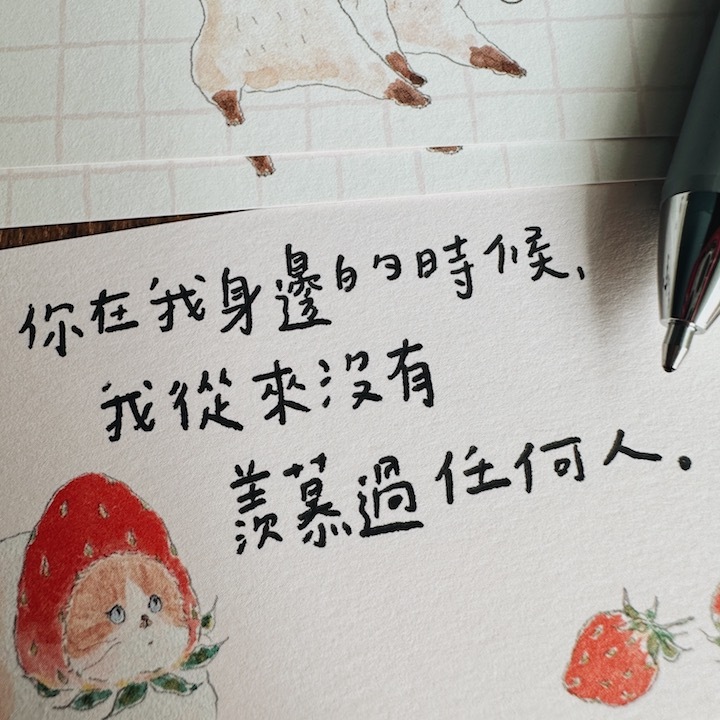 你在我身邊的時候,
我從來沒有
羨慕過任何人。